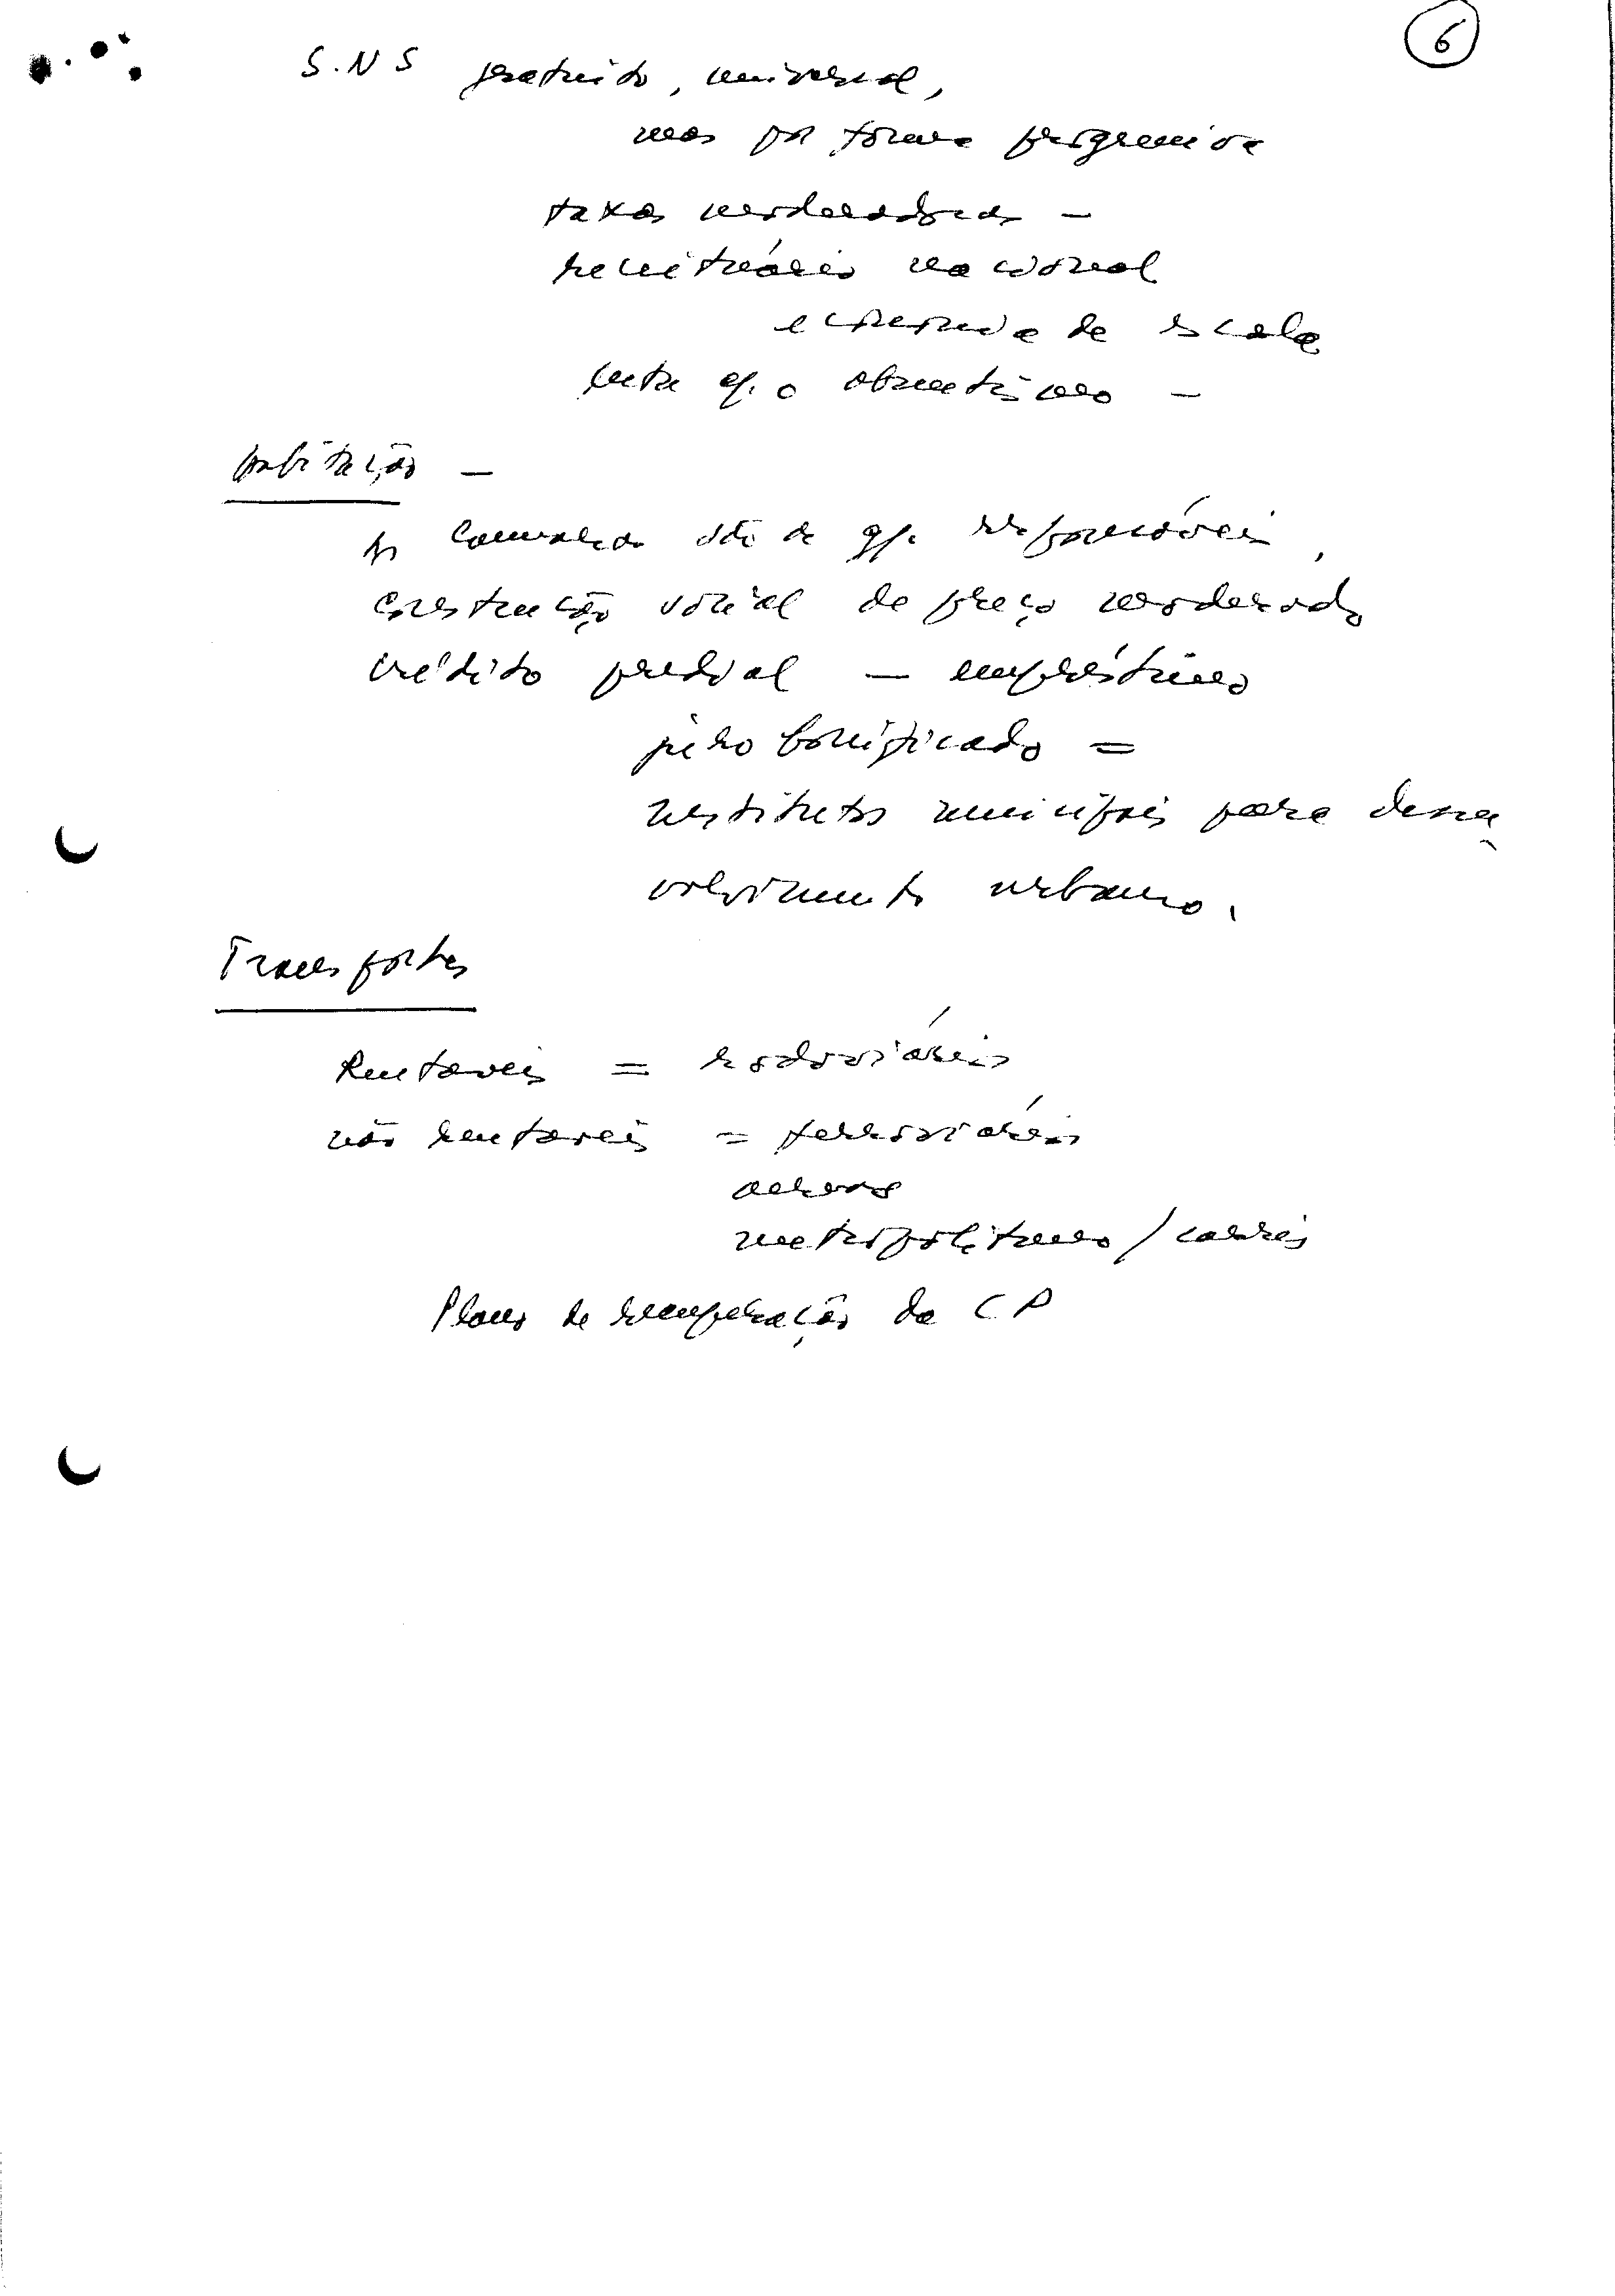 6
S.N S gratuito, universal,
mas por forma progressiva
taxas moderadoras —
receituário nacional
economia de escala
luta q. o
habitação —
As Camaras são as gr. responsáveis,
construção social de preço moderado
crédito predial — empréstimo
juro bonificado =
institutos municipais para desen
volvimento urbano.
Transportes
Rentaveis = rodoviários
não rentaveis = ferroviários
aéreos
metropolitano / carris
Plano de recuperação da CP